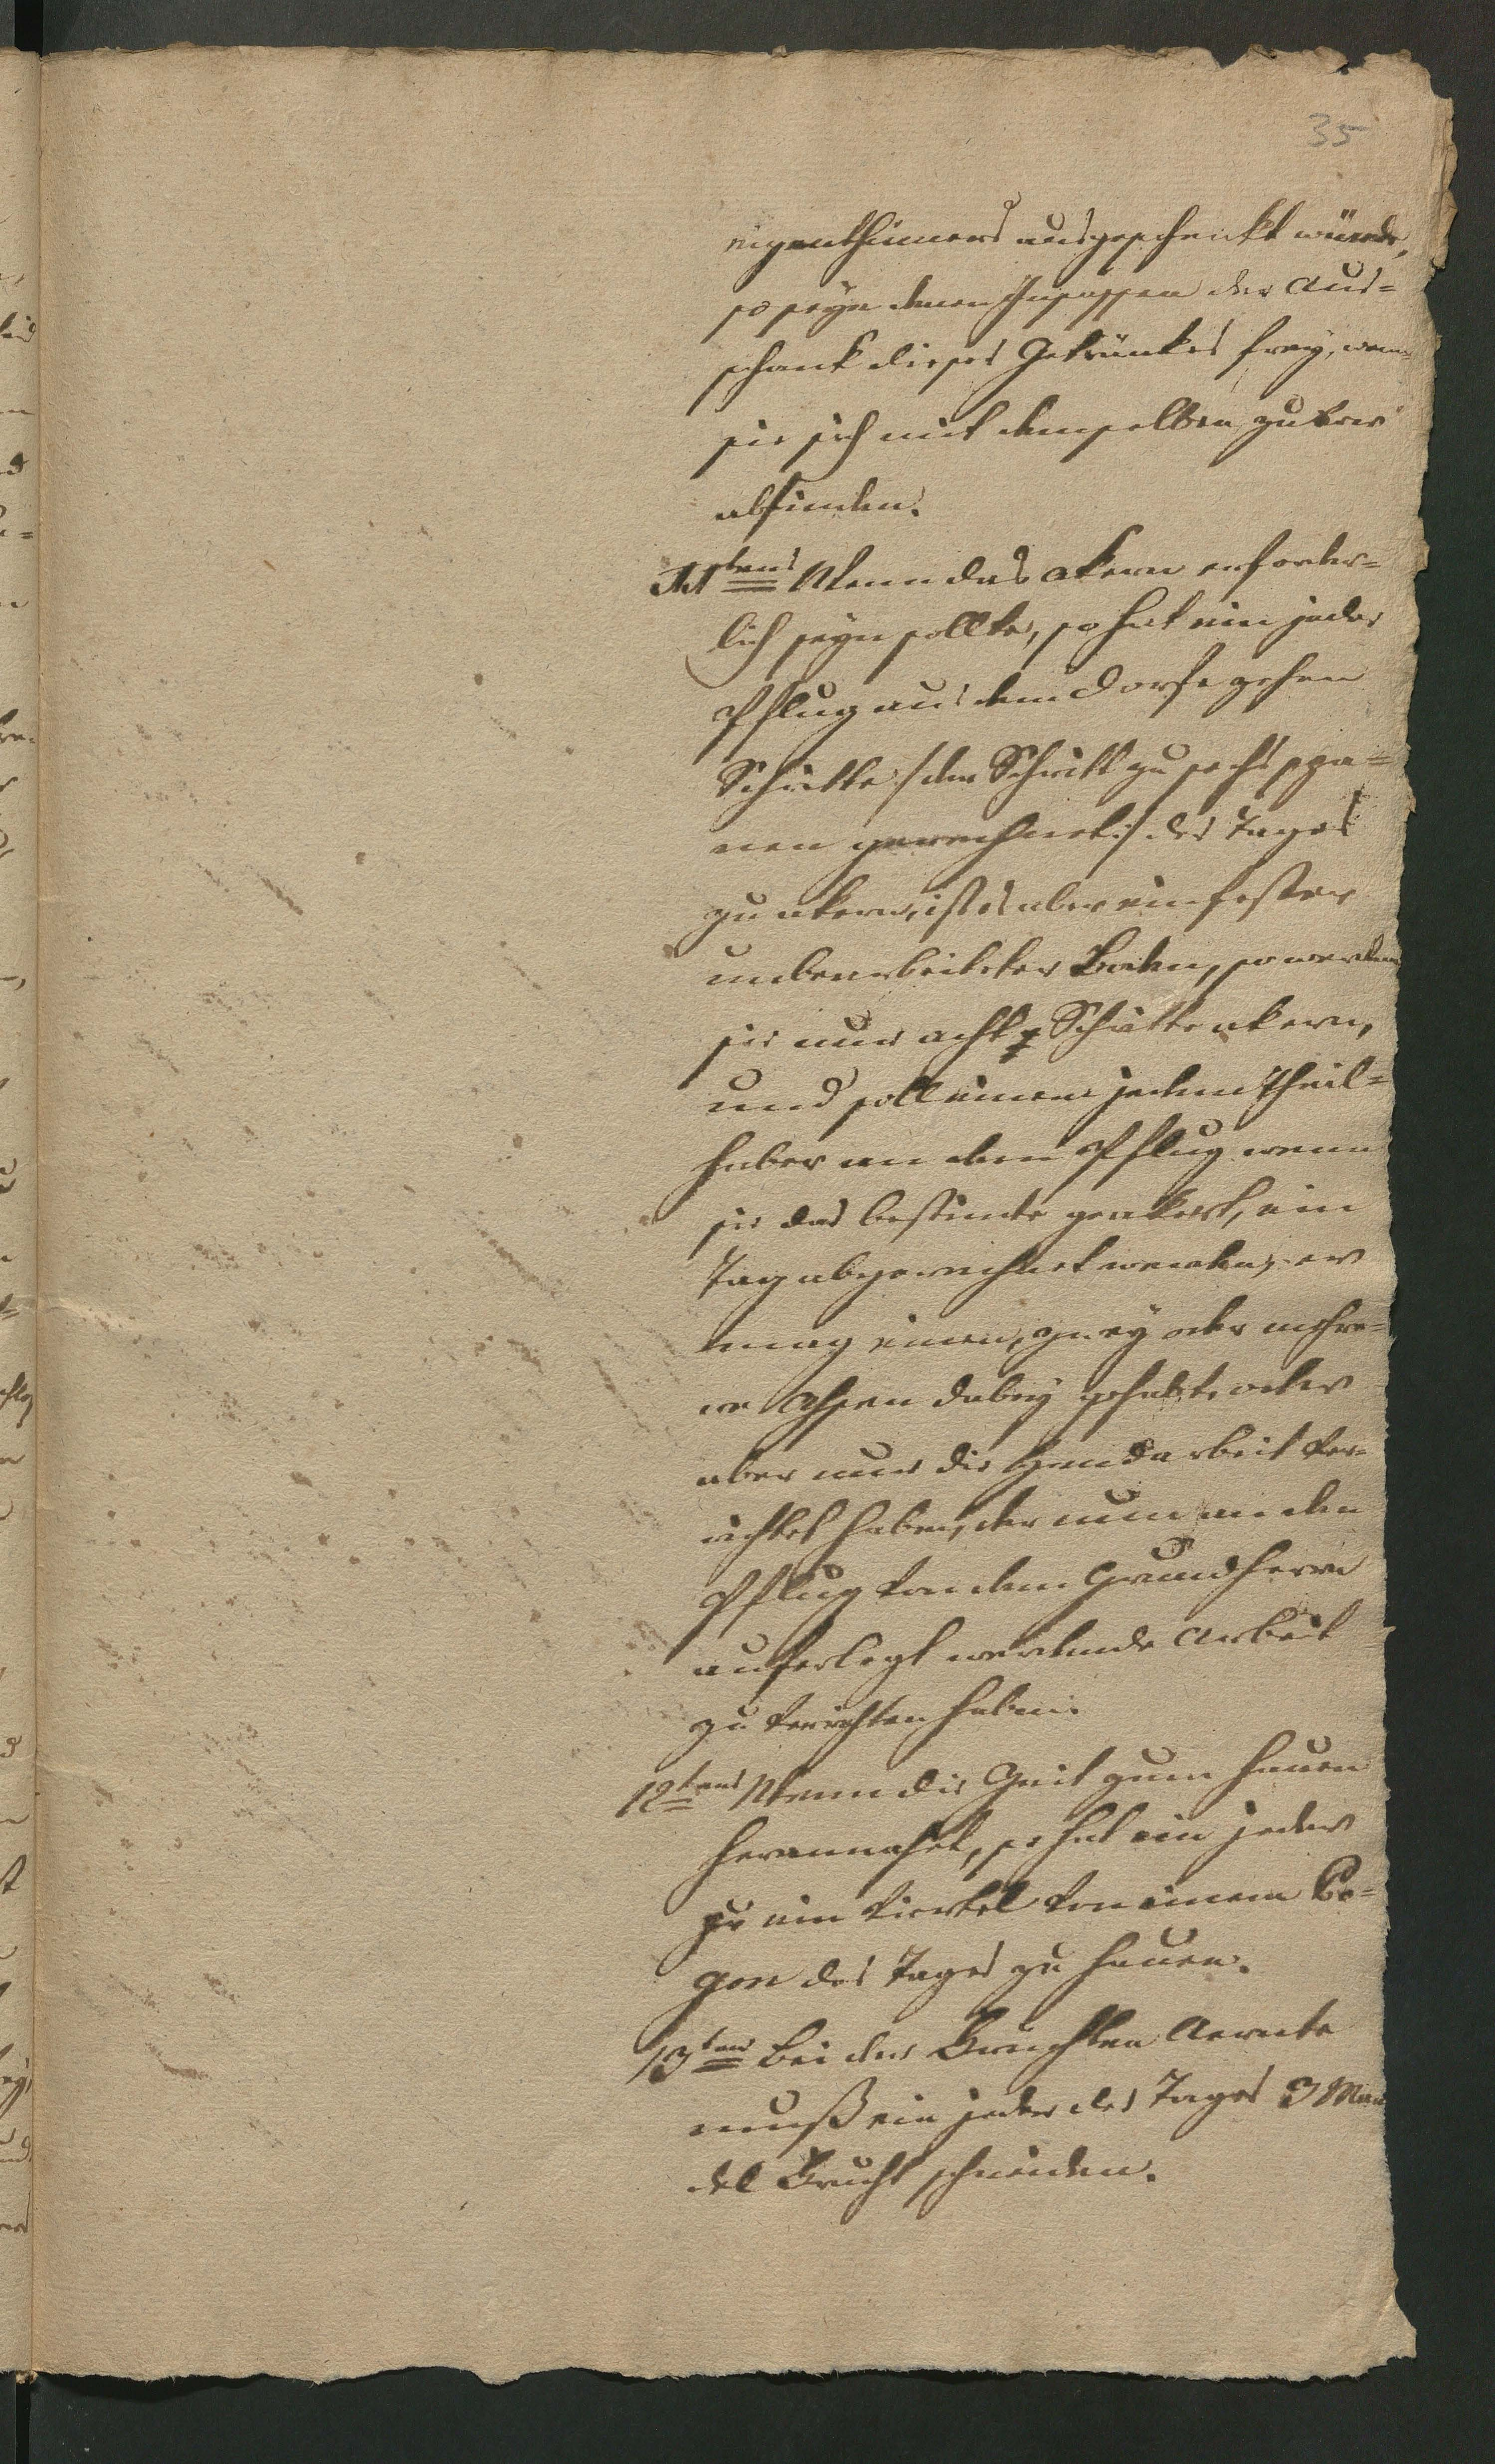 35
eigenthümers ausgeschenkt würde,
so seye denen Insassen der Aus=
schank dieses Getränkes frey, wenn
sie sich mit demselben zuvor
abfinden.
11tens Wenn das akern erforder=
lich seyn sollte, so hat ein jeder
Pflug aus dem Dorfe zehen
Schritte /:den Schritt zu sechs spa=
nen gerechnet:/ des Tages
zu akern, ist es aber ein fester
unbearbeiteter Boden, so werden
sie nur acht Schritte akern,
und soll einem jedem Theil=
haber an dem Pflug wenn
sie das bestimte geakert, ein
Tag abgerechnet werden, er
mag einen, zwey oder mehre=
re Ochsen dabey gehabt oder
aber nur die Handarbeit ver=
richtet haben, der nun an den
Pflug von dem Grundherrn
auferlegt werdende Arbeit
zu verrichten haben.
12tens Wenn die Zeit zum hauen
herannahet, so hat ein jeder
zu ein viertel von einem Po=
gon des Tages zu hauen.
13tens Bei der Fruchten Aernte
muß ein jeder des Tages 3 Man
del Frucht schneiden.